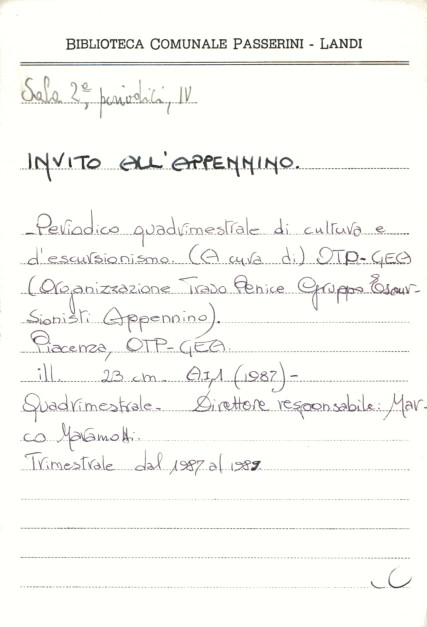 BIBLIOTECA COMUNALE PASSERINI - LANDI
Sala 2ª, periodici, IV
INVITO ALL'APPENNINO.
-Periodico quadrimestrale di cultura e
d'escursionismo. (A cura di) OTP-GEA
(Organizzazione Travo Penice Gruppo Escur-
sionisti Appennino).
Piacenza, OTP-GEA.
ill. 23 cm. A.I,1 (1987)-
Quadrimestrale. Direttore responsabile: Mar-
co Maramotti.
Trimestrale dal 1987 al 1989.